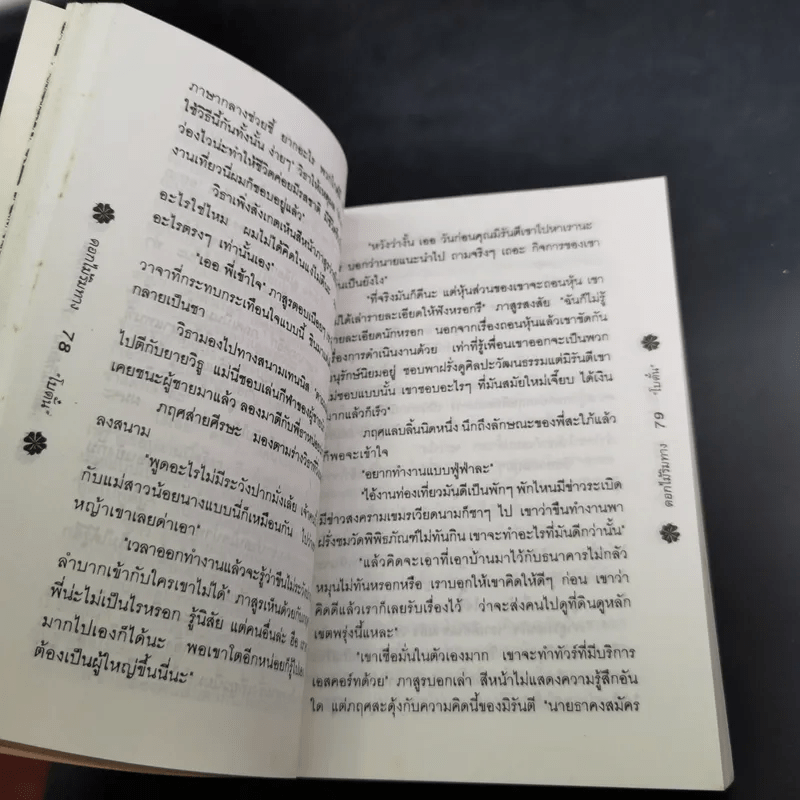 ภาษากลางช่วยชี้ ยากอะไร
ใช้วิธีนี้กันทั้งนั้น ง่ายๆ
ว่องไวน่ะทำให้ชีวิตค่อยมีรสชาติ
งานเที่ยวนี่ผมก็ชอบอยู่แล้ว"
วิธาเพิ่งสังเกตเห็นสีหน้าภาสูร
อะไรใช่ไหม ผมไม่ได้คิดในแง่ไม่ดีนะ
อะไรตรงๆ เท่านั้นเอง"
"เออ พี่เข้าใจ" ภาสูรตอบเนือยๆ
วาจาที่กระทบกระเทือนใจแบบนี้
กลายเป็นชา
วิธามองไปทางสนามเทนนิส
ไปตีกับยายวิฐู แม่นี่ชอบเล่นกีฬาของผู้ชาย
เคยชนะผู้ชายมาแล้ว ลองมาตีกับพี่
ภฤศส่ายศีรษะ มองตามร่างวิธาที่
ลงสนาม
"พูดอะไรไม่มีระวังปากมั่งเล้ย
กับแม่สาวน้อยนางแบบนี่ก็เหมือนกัน
หญ้าเขาเลยด่าเอา"
"เวลาออกทำงานแล้วจะรู้ว่าขืนไม่ระวัง
ลำบากเข้ากับใครเขาไม่ได้" ภาสูรเห็นด้วย
พี่น่ะไม่เป็นไรหรอก รู้นิสัย แต่คนอื่นล่ะ ฮือ
มากไปเองก็ได้นะ พอเขาโตอีกหน่อยก็รู้
ต้องเป็นผู้ใหญ่ขึ้นนี่นะ"
ดอกไม้ริมทาง 78 "โบตั๋น"
"หวังว่างั้น เออ วันก่อนคุณมิรันตีเขาไปหาเรานะ
บอกว่านายแนะนำไป ถามจริงๆ เถอะ กิจการของเขา
เป็นยังไง"
"ที่จริงมันก็ดีนะ แต่หุ้นส่วนของเขาจะถอนหุ้น เขา
ไม่ได้เล่ารายละเอียดให้ฟังหรอกรึ" ภาสูรสงสัย "ฉันก็ไม่รู้
รายละเอียดนักหรอก นอกจากเรื่องถอนหุ้นแล้วเขาขัดกัน
เรื่องการดำเนินงานด้วย เท่าที่รู้เพื่อนเขาออกจะเป็นพวก
อนุรักษ์นิยมอยู่ ชอบพาฝรั่งดูศิลปะวัฒนธรรมแต่มิรันตีเขา
ไม่ชอบแบบนั้น เขาชอบอะไรๆ ที่มันสมัยใหม่เจี๊ยบ ได้เงิน
มากแล้วก็เร็ว"
ภฤศแลบลิ้นนิดหนึ่ง นึกถึงลักษณะของพี่สะใภ้แล้ว
ก็พอจะเข้าใจ
"อยากทำงานแบบฟู่ฟ่าละ"
"ไอ้งานท่องเที่ยวมันดีเป็นพักๆ พักไหนมีข่าวระเบิด
มีข่าวสงครามเขมรเวียดนามก็ซาๆ ไป เขาว่าขืนทำงานพา
ฝรั่งชมวัดพิพิธภัณฑ์ไม่ทันกิน เขาจะทำอะไรที่มันดีกว่านั้น"
"แล้วคิดจะเอาที่เอาบ้านมาไว้กับธนาคารไม่กลัว
หมุนไม่ทันหรอกหรือ เราบอกให้เขาคิดให้ดีๆ ก่อน เขาว่า
คิดดีแล้วเราก็เลยรับเรื่องไว้ ว่าจะส่งคนไปดูที่ดินดูหลัก
เขตพรุ่งนี้แหละ"
"เขาเชื่อมั่นในตัวเองมาก เขาจะทำทัวร์ที่มีบริการ
เอสคอร์ทด้วย" ภาสูรบอกเล่า สีหน้าไม่แสดงความรู้สึกอัน
ใด แต่ภฤศสะดุ้งกับความคิดนี้ของมิรันตี "นายธาคงสมัคร
ดอกไม้ริมทาง 79 "โบตั๋น"